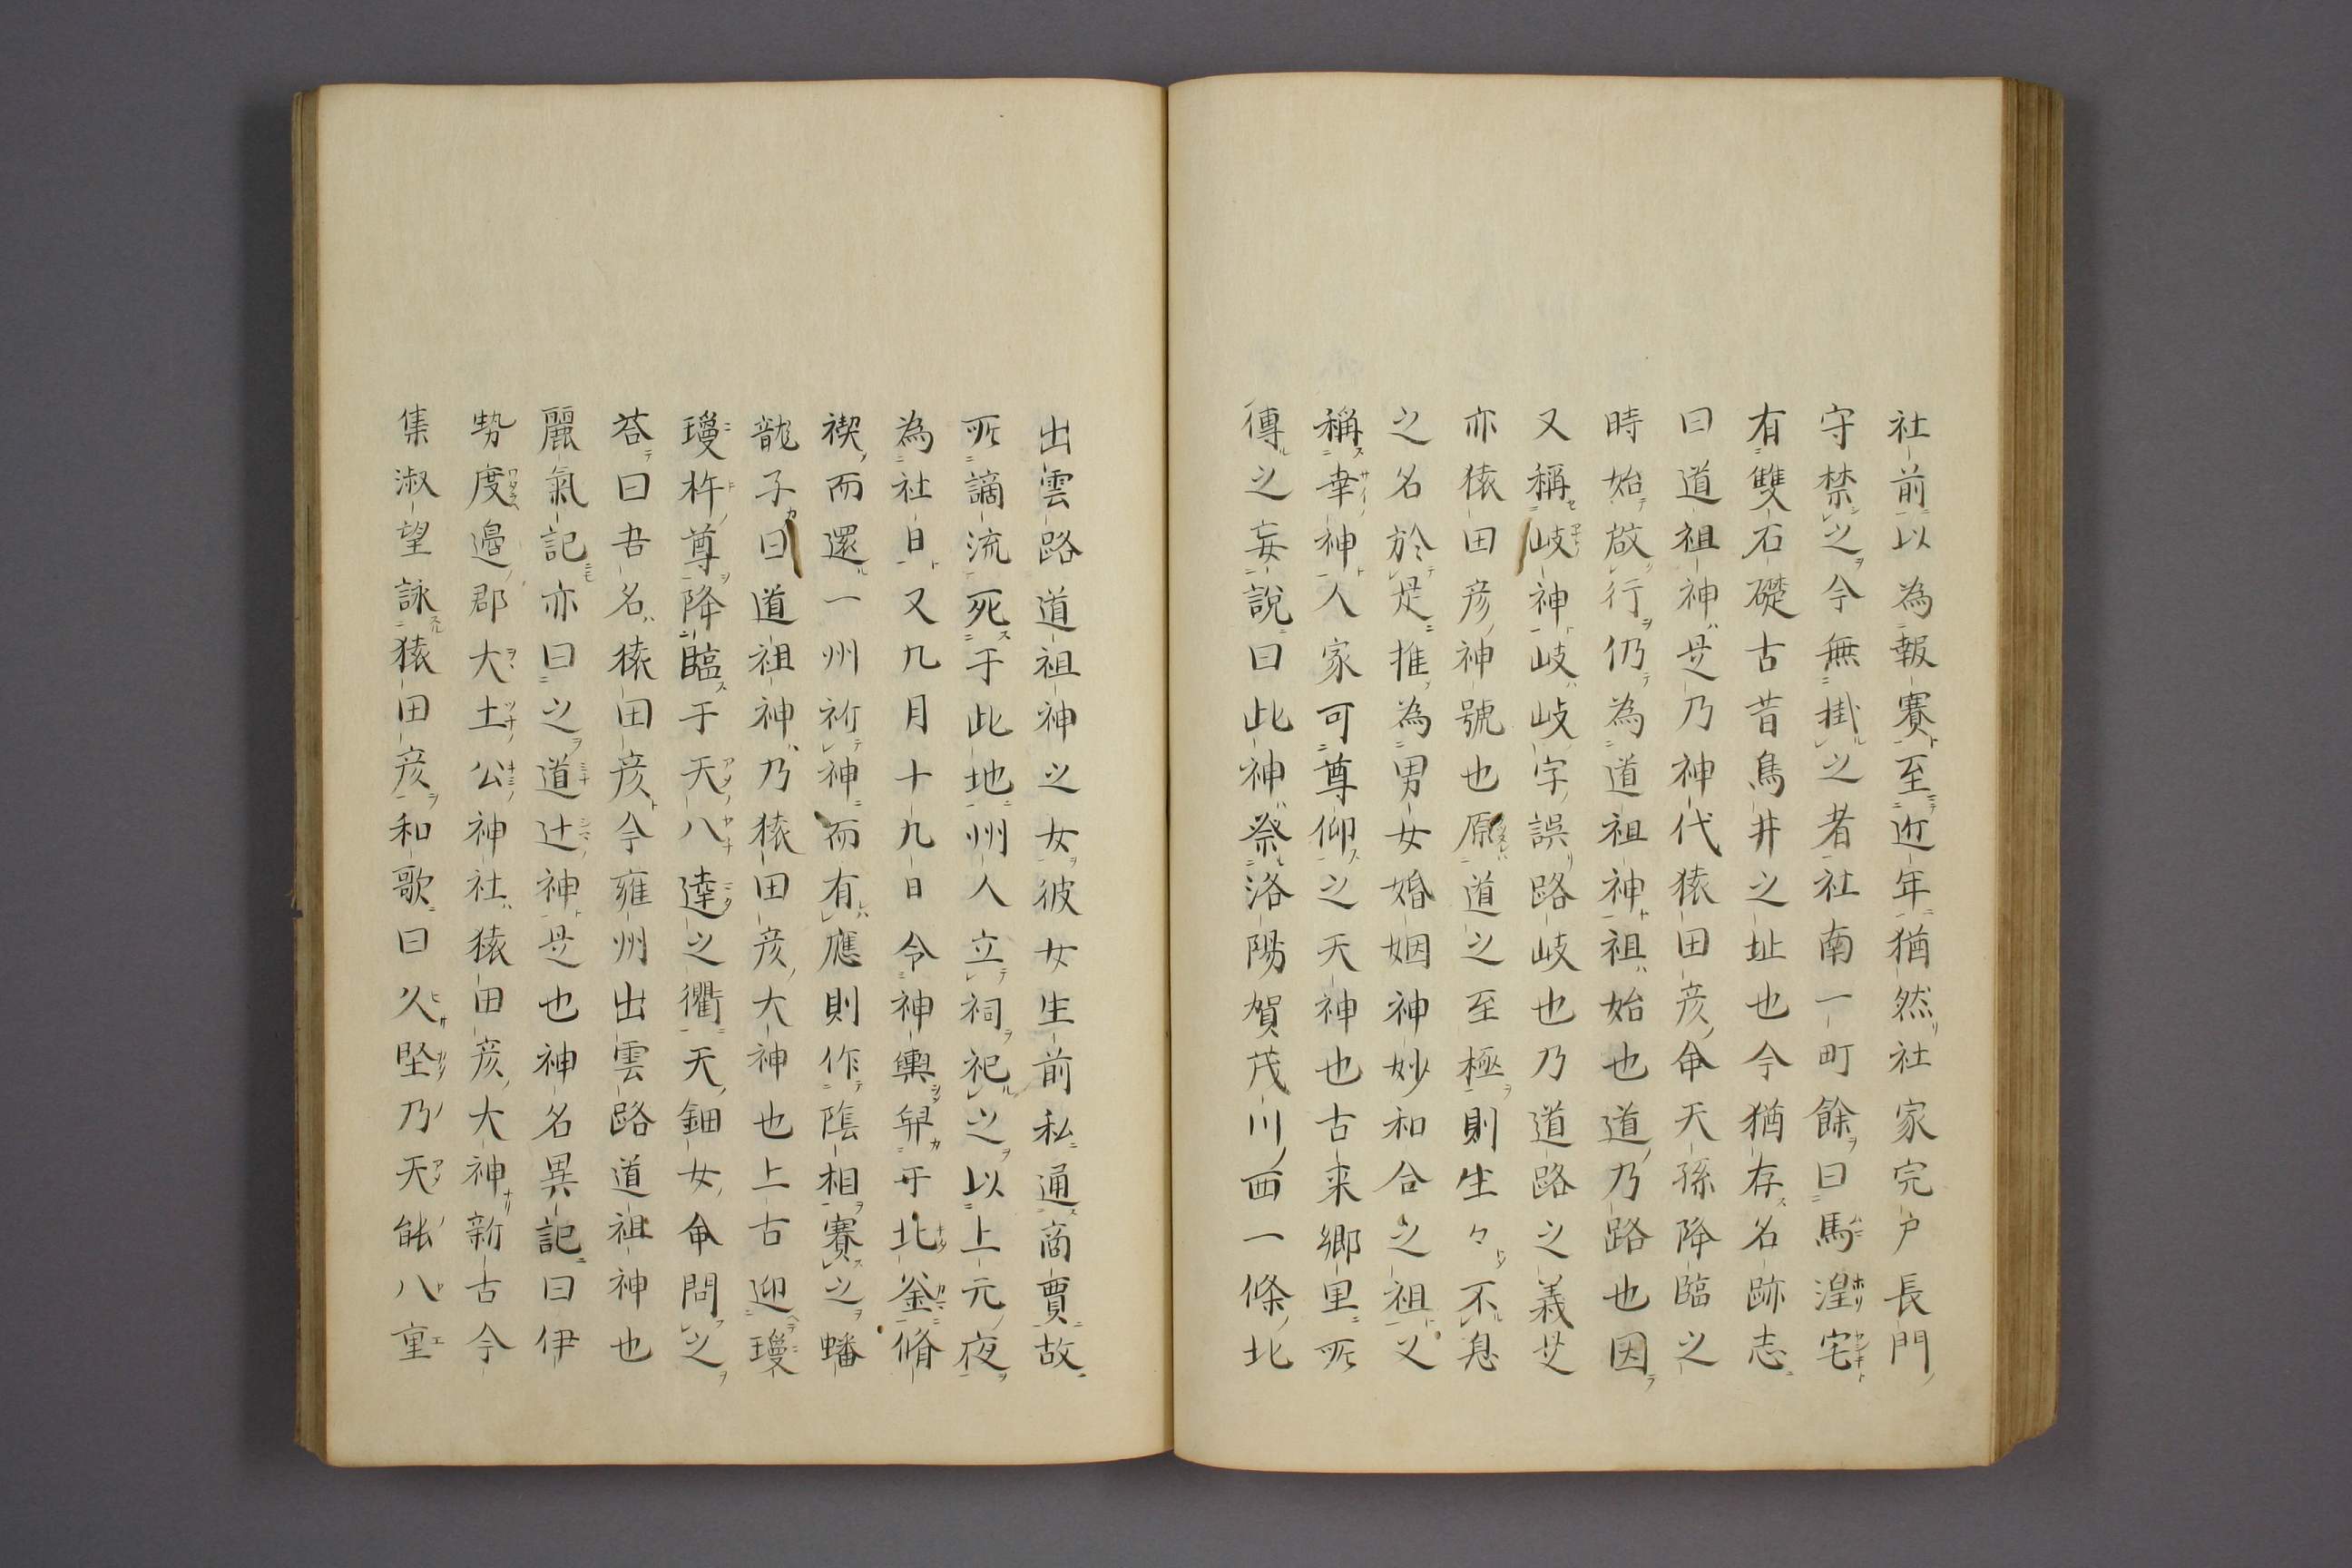 社前以為報賽至近年猶然社家完戸長門
守禁之今無掛之者社南一町餘曰馬湟宅
有雙石礎古昔馬井之址也今猶存名跡志
曰道祖神是乃神代猿田彦命天孫降臨之
時始啟行仍為道祖神祖始也道乃路也因
又稱岐神岐岐字誤路岐也乃道路之義也
亦猿田彦神號也原道之至極則生々不息
之名於是推為男女婚姻神妙和合之祖又
稱幸神人家可尊仰之天神也古来郷里所
傳之妄説曰此神祭洛陽賀茂川西一條北
出雲路道祖神之女彼女生前私通商賈故
所謫流死于此地州人立祠祀之以上元夜
為社日又九月十九日令神輿舁于北釜脩
禊而還一州祈神而有應則作陰相賽之蟠
龍子曰道祖神乃猿田彦大神也上古迎瓊
瓊杵尊降臨于天八達之衢天鈿女命問之
荅曰吾名猿田彦今雍州出雲路道祖神也
麗氣記亦曰之道辻神是也神名異記曰伊
勢度邉郡大土公神社猿田彦大神新古今
集淑望詠猿田彦和歌曰久堅乃天能八重